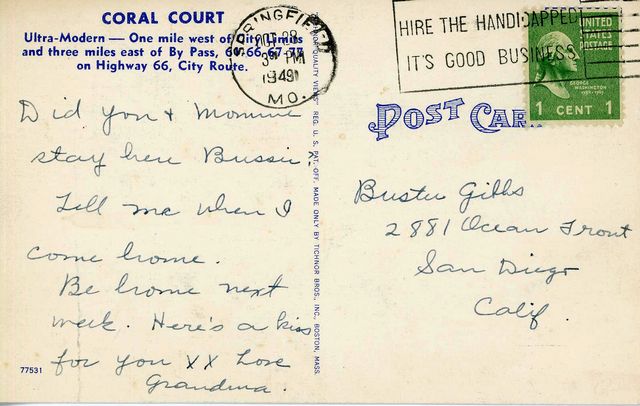 CORAL COURT
Ultra-Modern — One mile west of City Limits
and three miles east of By Pass, 61-66-67-77
on Highway 66, City Route.
Did you & Mommie
stay here Bussie?
Tell me when I
come home.
Be home next
week. Here's a kiss
for you XX Love
Grandma.
77531
QUALITY VIEWS" REG. U. S. PAT. OFF. MADE ONLY BY TICHNOR BROS., INC., BOSTON, MASS.
SPRINGFIELD
OCT 28
PM
1949
MO.
HIRE THE HANDICAPPED
IT'S GOOD BUSINESS
UNITED
STATES
POSTAGE
GEORGE
WASHINGTON
1789-1797
1 CENT 1
POST CARD
Buster Gibbs
2881 Ocean Front
San Diego
Calif.